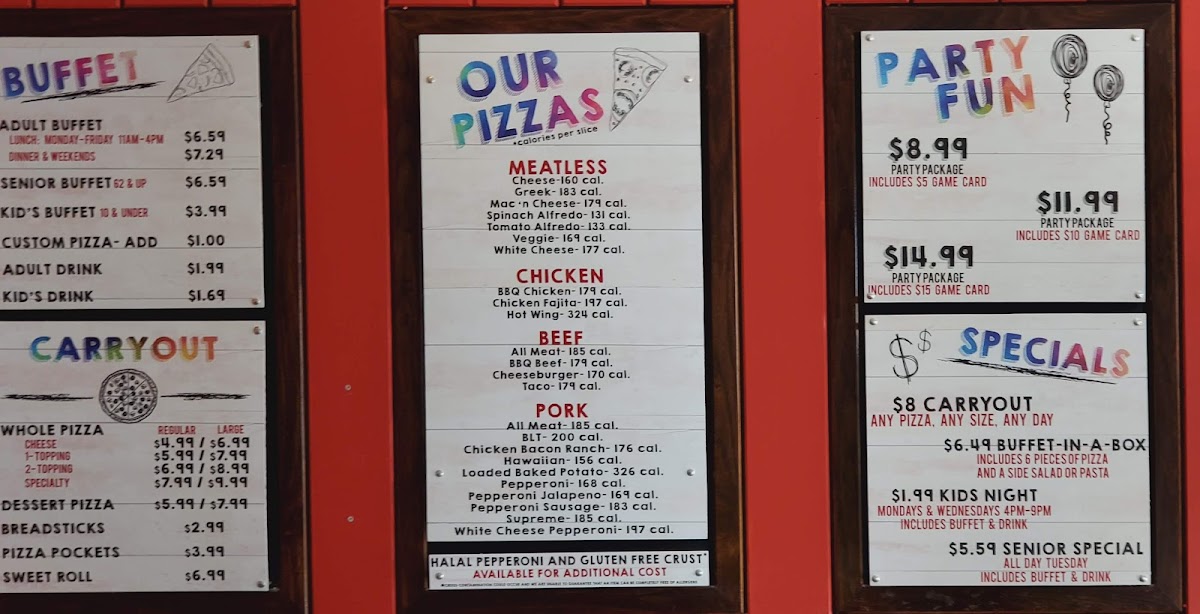 BUFFET
ADULT BUFFET
LUNCH: MONDAY-FRIDAY 11AM-4PM $6.59
DINNER & WEEKENDS $7.29
SENIOR BUFFET 62 & UP $6.59
KID'S BUFFET 10 & UNDER $3.99
CUSTOM PIZZA- ADD $1.00
ADULT DRINK $1.99
KID'S DRINK $1.69
CARRYOUT
WHOLE PIZZA REGULAR LARGE
CHEESE $4.99 / $6.99
1-TOPPING $5.99 / $7.99
2-TOPPING $6.99 / $8.99
SPECIALTY $7.99 / $9.99
DESSERT PIZZA $5.99 / $7.99
BREADSTICKS $2.99
PIZZA POCKETS $3.99
SWEET ROLL $6.99
OUR
PIZZAS
*calories per slice
MEATLESS
Cheese-160 cal.
Greek- 183 cal.
Mac 'n Cheese- 179 cal.
Spinach Alfredo- 131 cal.
Tomato Alfredo- 133 cal.
Veggie- 169 cal.
White Cheese- 177 cal.
CHICKEN
BBQ Chicken- 179 cal.
Chicken Fajita- 197 cal.
Hot Wing- 324 cal.
BEEF
All Meat- 185 cal.
BBQ Beef- 179 cal.
Cheeseburger- 170 cal.
Taco- 179 cal.
PORK
All Meat- 185 cal.
BLT- 200 cal.
Chicken Bacon Ranch- 176 cal.
Hawaiian- 156 cal.
Loaded Baked Potato- 326 cal.
Pepperoni- 168 cal.
Pepperoni Jalapeno- 169 cal.
Pepperoni Sausage- 183 cal.
Supreme- 185 cal.
White Cheese Pepperoni- 197 cal.
HALAL PEPPERONI AND GLUTEN FREE CRUST*
AVAILABLE FOR ADDITIONAL COST
*CROSS CONTAMINATION COULD OCCUR AND WE ARE UNABLE TO GUARANTEE THAT AN ITEM CAN BE COMPLETELY FREE OF ALLERGENS
PARTY
FUN
$8.99
PARTY PACKAGE
INCLUDES $5 GAME CARD
$11.99
PARTY PACKAGE
INCLUDES $10 GAME CARD
$14.99
PARTY PACKAGE
INCLUDES $15 GAME CARD
$ $
SPECIALS
$8 CARRYOUT
ANY PIZZA, ANY SIZE, ANY DAY
$6.49 BUFFET-IN-A-BOX
INCLUDES 6 PIECES OF PIZZA
AND A SIDE SALAD OR PASTA
$1.99 KIDS NIGHT
MONDAYS & WEDNESDAYS 4PM-9PM
INCLUDES BUFFET & DRINK
$5.59 SENIOR SPECIAL
ALL DAY TUESDAY
INCLUDES BUFFET & DRINK